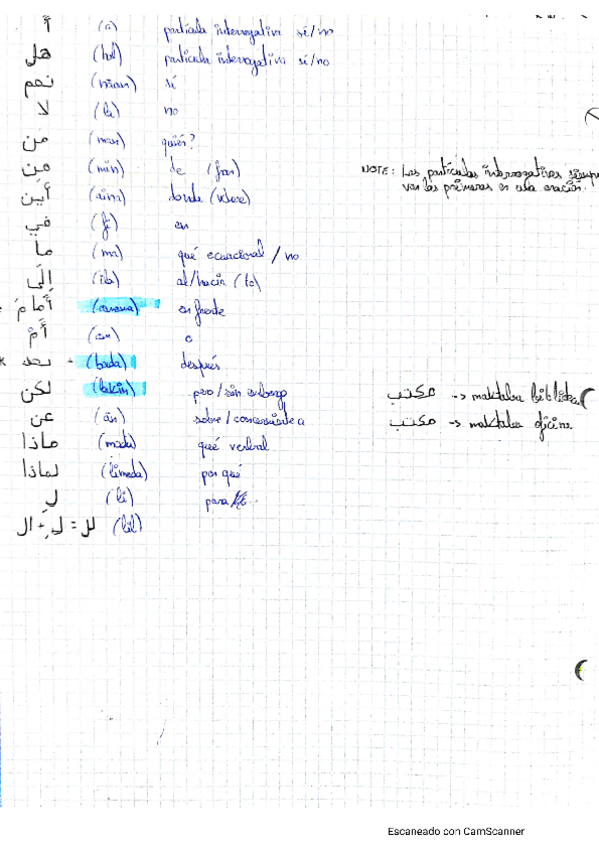 أ (a) partícula interrogativa sí/no
هل (hal) partícula interrogativa sí/no
نعم (niam) sí
لا (la) no
من (man) quién?
مِن (min) de (from)
أين (aina) donde (where)
في (fi) en
ما (ma) qué ecuacional / no
إلَى (ila) al/hacia (to)
أَمَامَ (amama) enfrente
أَمْ (am) o
بعد (bada) después
لكن (lakin) pero/sin embargo
عن (an) sobre/concerniente a
ماذا (mada) qué verbal
لماذا (limada) por qué
لِ (li) para
لل = لِ + ال (lil)
NOTE: Las partículas interrogativas siempre
van las primeras en cada oración.
مكتب -> maktaba biblioteca
مكتب -> maktaba oficina
Escaneado con CamScanner